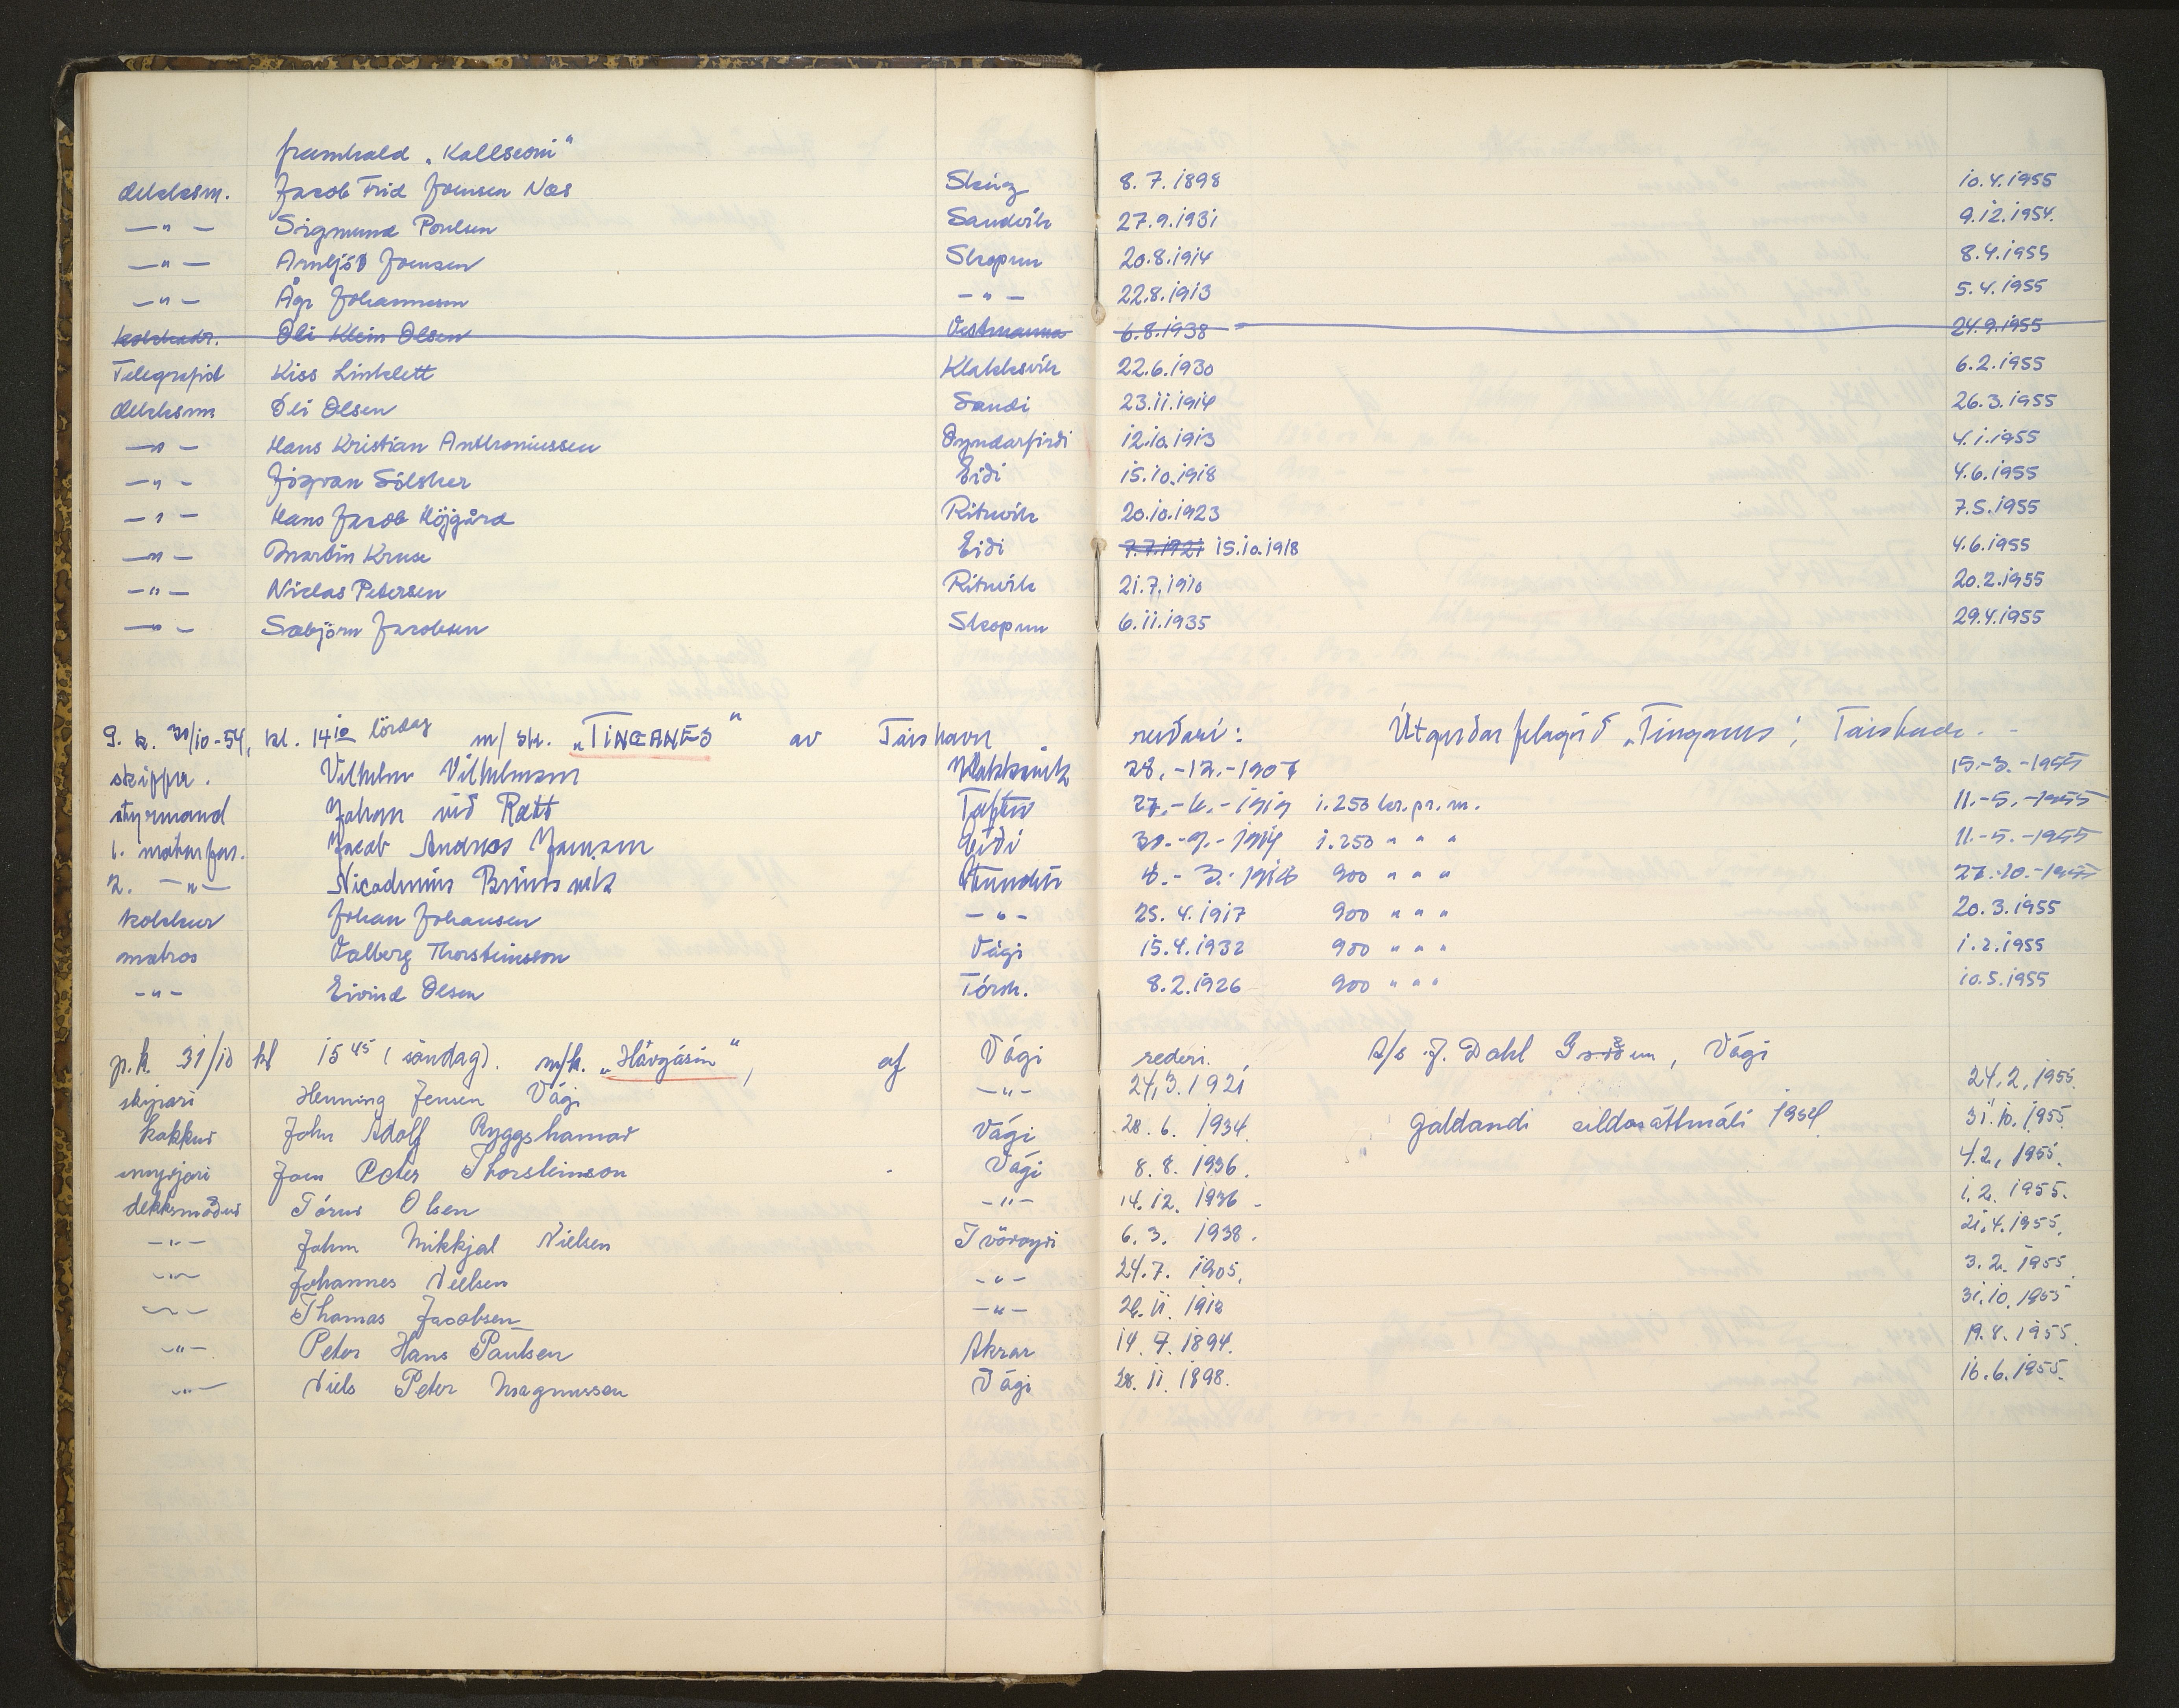 framhald „Kallseoni“
dekksm. Jacob Frid Joensen Næs Skúg 8.7.1898 10.4.1955
—"— Sigmund Poulsen Sandvík 27.9.1931 9.12.1954.
—"— Arnljóð Joensen Skopun 20.8.1914 8.4.1955
—"— Åge Johannesen —"— 22.8.1913 5.4.1955
kokkadr. Óli Klein Olsen Vestmanna 6.8.1938 24.9.1955
Telegrafist Kiss Linklett Klakksvík 22.6.1930 6.2.1955
dekksm Óli Olsen Sandi 23.11.1914 26.3.1955
—"— Hans Kristian Anthoniussen Oyndarfirði 12.10.1913 4.1.1955
—"— Jógvan Sólsker Eiði 15.10.1918 4.6.1955
—"— Hans Jacob Højgård Rituvík 20.10.1923 7.5.1955
—"— Martin Kruse Eiði 7.7.1921 15.10.1918 4.6.1955
—"— Niclas Petersen Rituvík 21.7.1910 20.2.1955
—"— Sæbjörn Jacobsen Skopun 6.11.1935 29.4.1955
P. k. 30/10-54, kl. 14 10 lördag m/sk. „TINGANES“ av Tórshavn reiðari: Útgerðarfelagið „Tinganes“,
skippr. Vilhelm Vilhelmsen Klakksvík 28.-12.-1907 15.-3.-1955
styrmand Johan við Rætt Toftir 27.-6.-1919 1.250 kr. pr. m. 11.-5.-1955
1. motorpas. Jacob Andreas Jensen Eiði 30.-9.-1914 1.250 " " " 11.-5.-1955
2. —"— Nicodemus 8.-3.-1918 900 " " " 27.-10.-1955
kokkur Johan Johansen —"— 25.4.1917 900 " " " 20.3.1955
matros Valberg Thorsteinsson Vági 15.4.1932 900 " " " 1.2.1955
—"— Eivind Olsen Tórsh. 8.2.1926 900 " " " 10.5.1955
p.k. 31/10 kl 15 45 (söndag). m/k. „Hávgásin“, af Vági rederi. A/s J. Dahl, Vági
skipari Henning Jensen Vági —"— 24.3.1921 24.2.1955.
kokkur John Adolf Ryggshamar Vági 28.6.1934. galdandi sildasáttmáli 1954 31.10.1955.
Joen Peter Thorsteinson Vági 8.8.1936. 4.2.1955.
dekksmaður Tórur Olsen —"— 14.12.1936 - 1.2.1955.
—"— John Mikkjal Nielsen Tvöroyri 6.3.1938. 21.4.1955.
—"— Johannes Nielsen —"— 24.7.1905. 3.2.1955
—"— Thomas Jacobsen —"— 26.11.1912 31.10.1955
—"— Peter Hans Paulsen Akrar 14.7.1894. 19.8.1955.
—"— Niels Peter Magnussen Vági 28.11.1898. 16.6.1955.